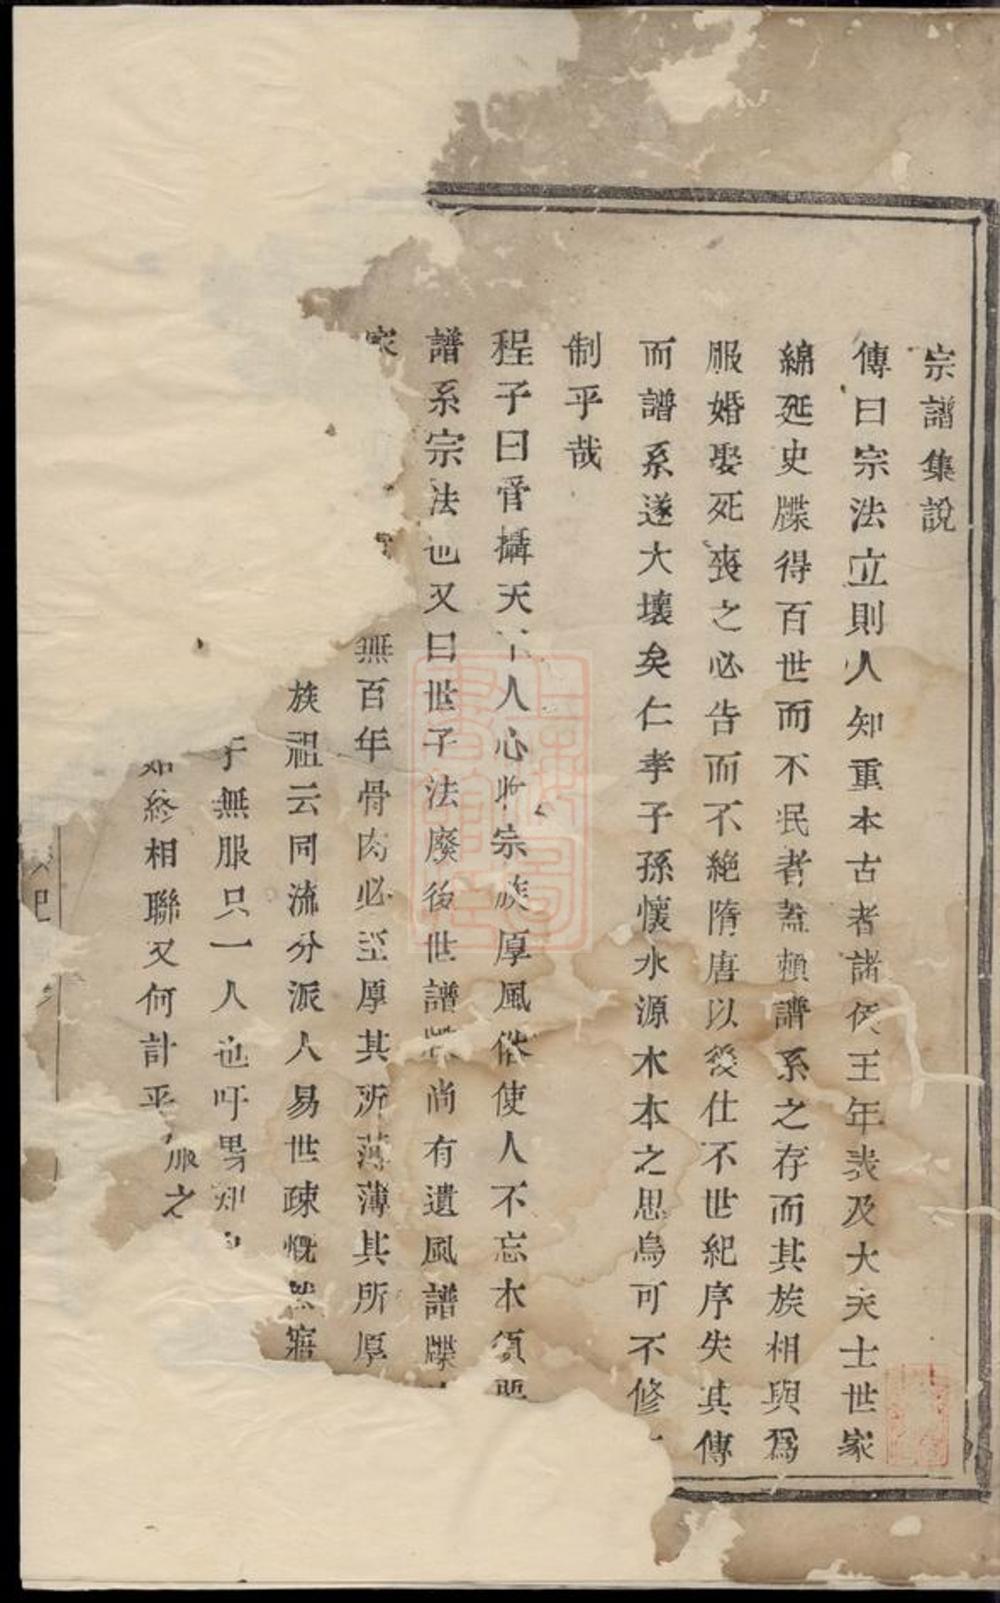 宗譜集說
傳曰宗法立則人知重本古者諸侯王年表及大夫士世家
綿延史牒得百世而不民者蓋頼譜系之存而其族相與爲
服婚娶死喪之必告而不絶隋唐以後仕不世紀序失其傳
而譜系遂大壞矣仁孝子孫懷水源木本之思烏可不修
制乎哉
程子曰管攝天下人心收宗族厚風俗使人不忘本須
譜系宗法也又曰世子法廢後世譜牒尚有遺風譜牒
家
無百年骨肉必至厚其所薄薄其所厚
族祖云同流分派人易世疎慨然寤
于無服只一人也吁男知
始終相聯又何計乎服之